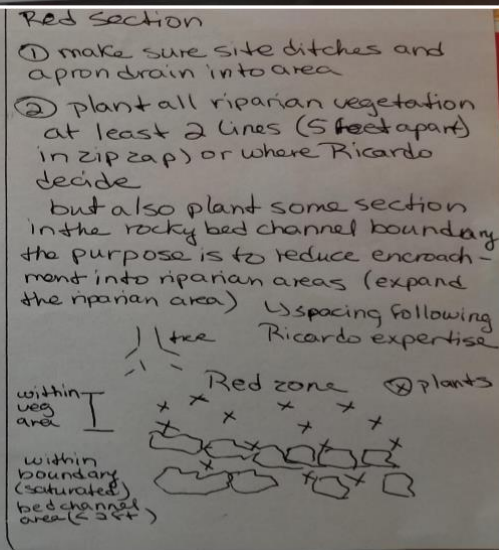 Red Section
① make sure site ditches and
apron drain into area
② plant all riparian vegetation
at least 2 lines (5 feet apart)
in zip zap) or where Ricardo
decide
but also plant some section
in the rocky bed channel boundary
the purpose is to reduce encroach-
ment into riparian areas (expand
the riparian area) ↳ spacing following
Ricardo expertise
tree
Red zone ⓧ plants
within
veg
area
within
boundary
(saturated)
bed channel
area (<